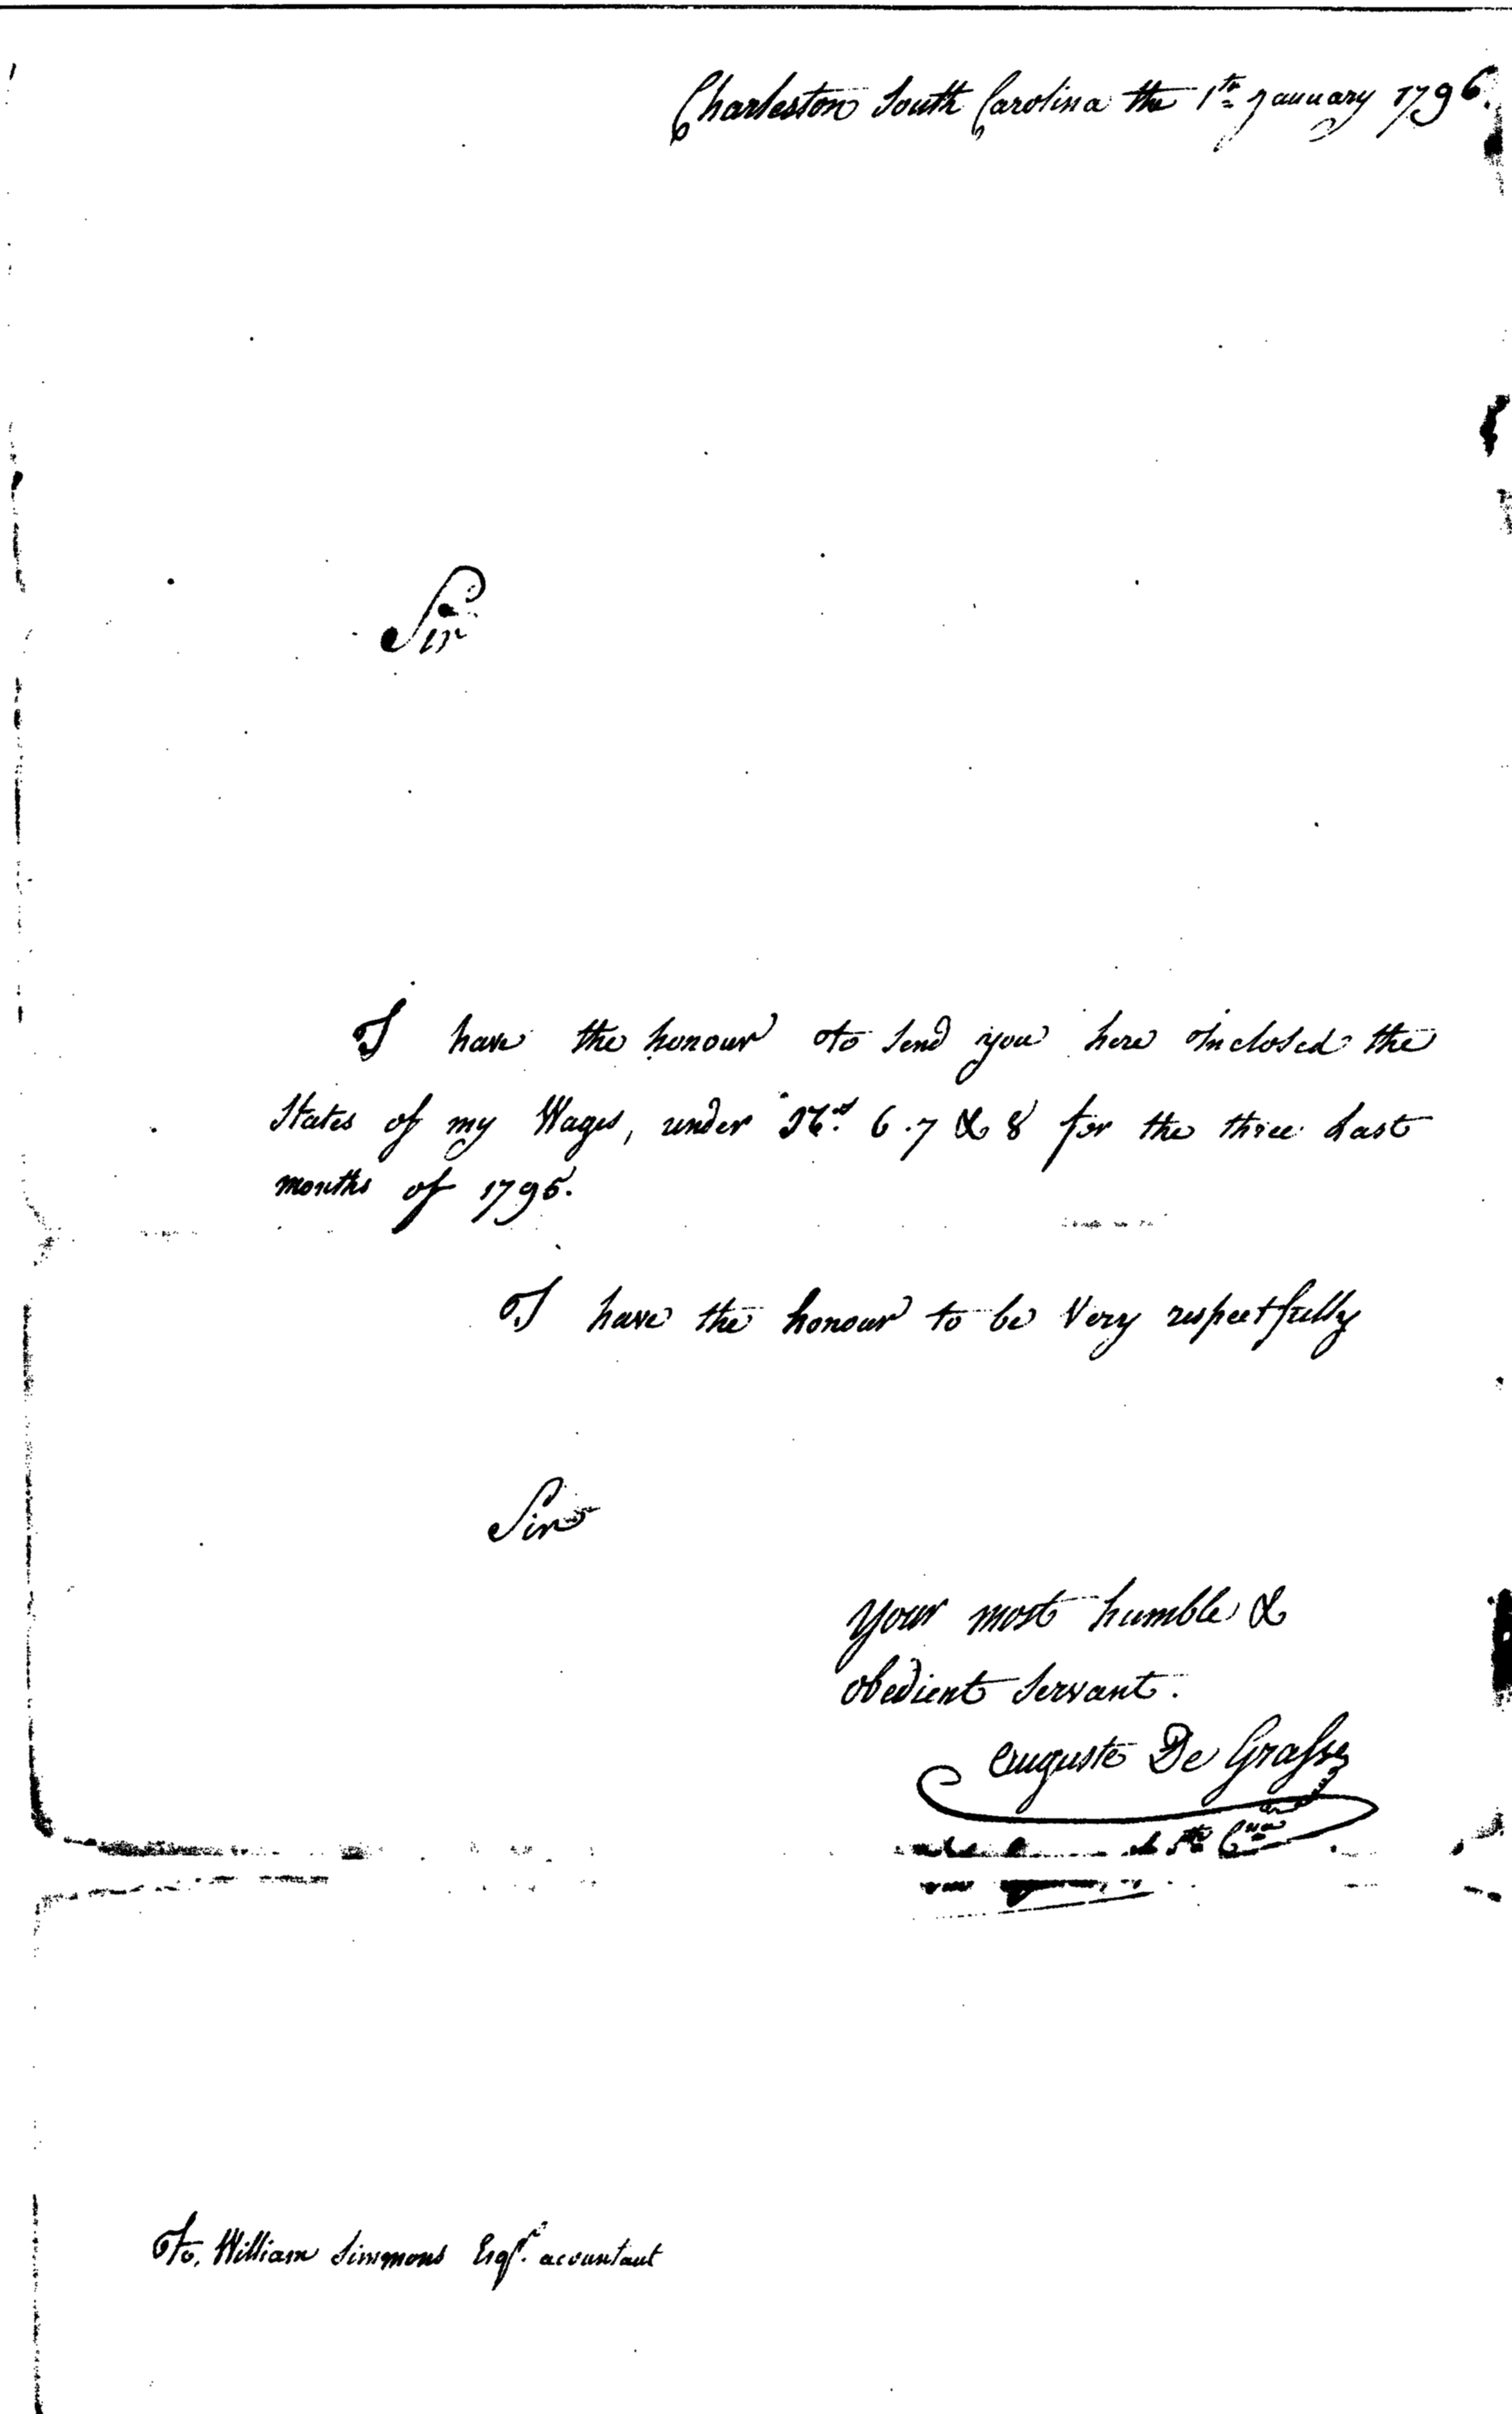 Charleston South Carolina the 1st January 1796.
Sir
I have the honour to send you here Inclosed the
States of my Wages, under Nos. 6. 7 & 8 for the three Last
months of 1795.
I have the honour to be Very respectfully
Sir
your most humble &
obedient Servant.
auguste De Grasse
To, William Simmons Esqr. accountant